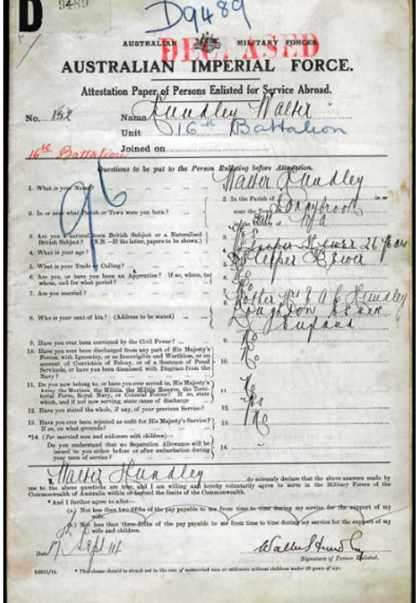 D
D9489
9489
DECEASED
AUSTRALIAN MILITARY FORCES
AUSTRALIAN IMPERIAL FORCE.
Attestation Paper of Persons Enlisted for Service Abroad.
No. 152 Name Hundley Walter
Unit 16th Battalion
16th Battalion Joined on
Questions to be put to the Person Enlisting before Attestation.
96
1. What is your Name? Walter Hundley
2. In or near what Parish or Town were you born? 2. In the Parish of Donnybrook in or
near the Town
W A
3. Are you a natural born British Subject or a Naturalised
British Subject? (N.B.—If the latter, papers to be shown.)
4. What is your age? 26 years
5. What is your Trade or Calling? Sleeper Hewer
6. Are you, or have you been an Apprentice? If so, where, to
whom, and for what period? No
7. Are you married?
8. Who is your next of kin? (Address to be stated) Mother Mrs E A E Hundley
Essex
England
9. Have you ever been convicted by the Civil Power? 9. No
10. Have you ever been discharged from any part of His Majesty's
Forces, with Ignominy, or as Incorrigible and Worthless, or on
account of Conviction of Felony, or of a Sentence of Penal
Servitude, or have you been dismissed with Disgrace from the
Navy? 10. No
11. Do you now belong to, or have you ever served in, His Majesty's
Army, the Marines, the Militia, the Militia Reserve, the Territorial
Force, Royal Navy, or Colonial Forces? If so, state
which, and if not now serving, state cause of discharge 11. No
12. Have you stated the whole, if any, of your previous Service? 12. Yes
13. Have you ever been rejected as unfit for His Majesty's Service?
If so, on what grounds? 13. No
*14. (For married men and widowers with children)—
Do you understand that no Separation Allowance will be
issued to you either before or after embarkation during
your term of service? 14.
I, Walter Hundley do solemnly declare that the above answers made by
me to the above questions are true, and I am willing and hereby voluntarily agree to serve in the Military Forces of the
Commonwealth of Australia within or beyond the limits of the Commonwealth.
*And I further agree to allot—
(a) Not less than two-fifths of the pay payable to me from time to time during my service for the support of my
wife.
(b) Not less than three-fifths of the pay payable to me from time to time during my service for the support of my
wife and children.
Date 17 Sept 14 Walter Hundley
Signature of Person Enlisted.
* This clause should be struck out in the case of unmarried men or widowers without children under 18 years of age.